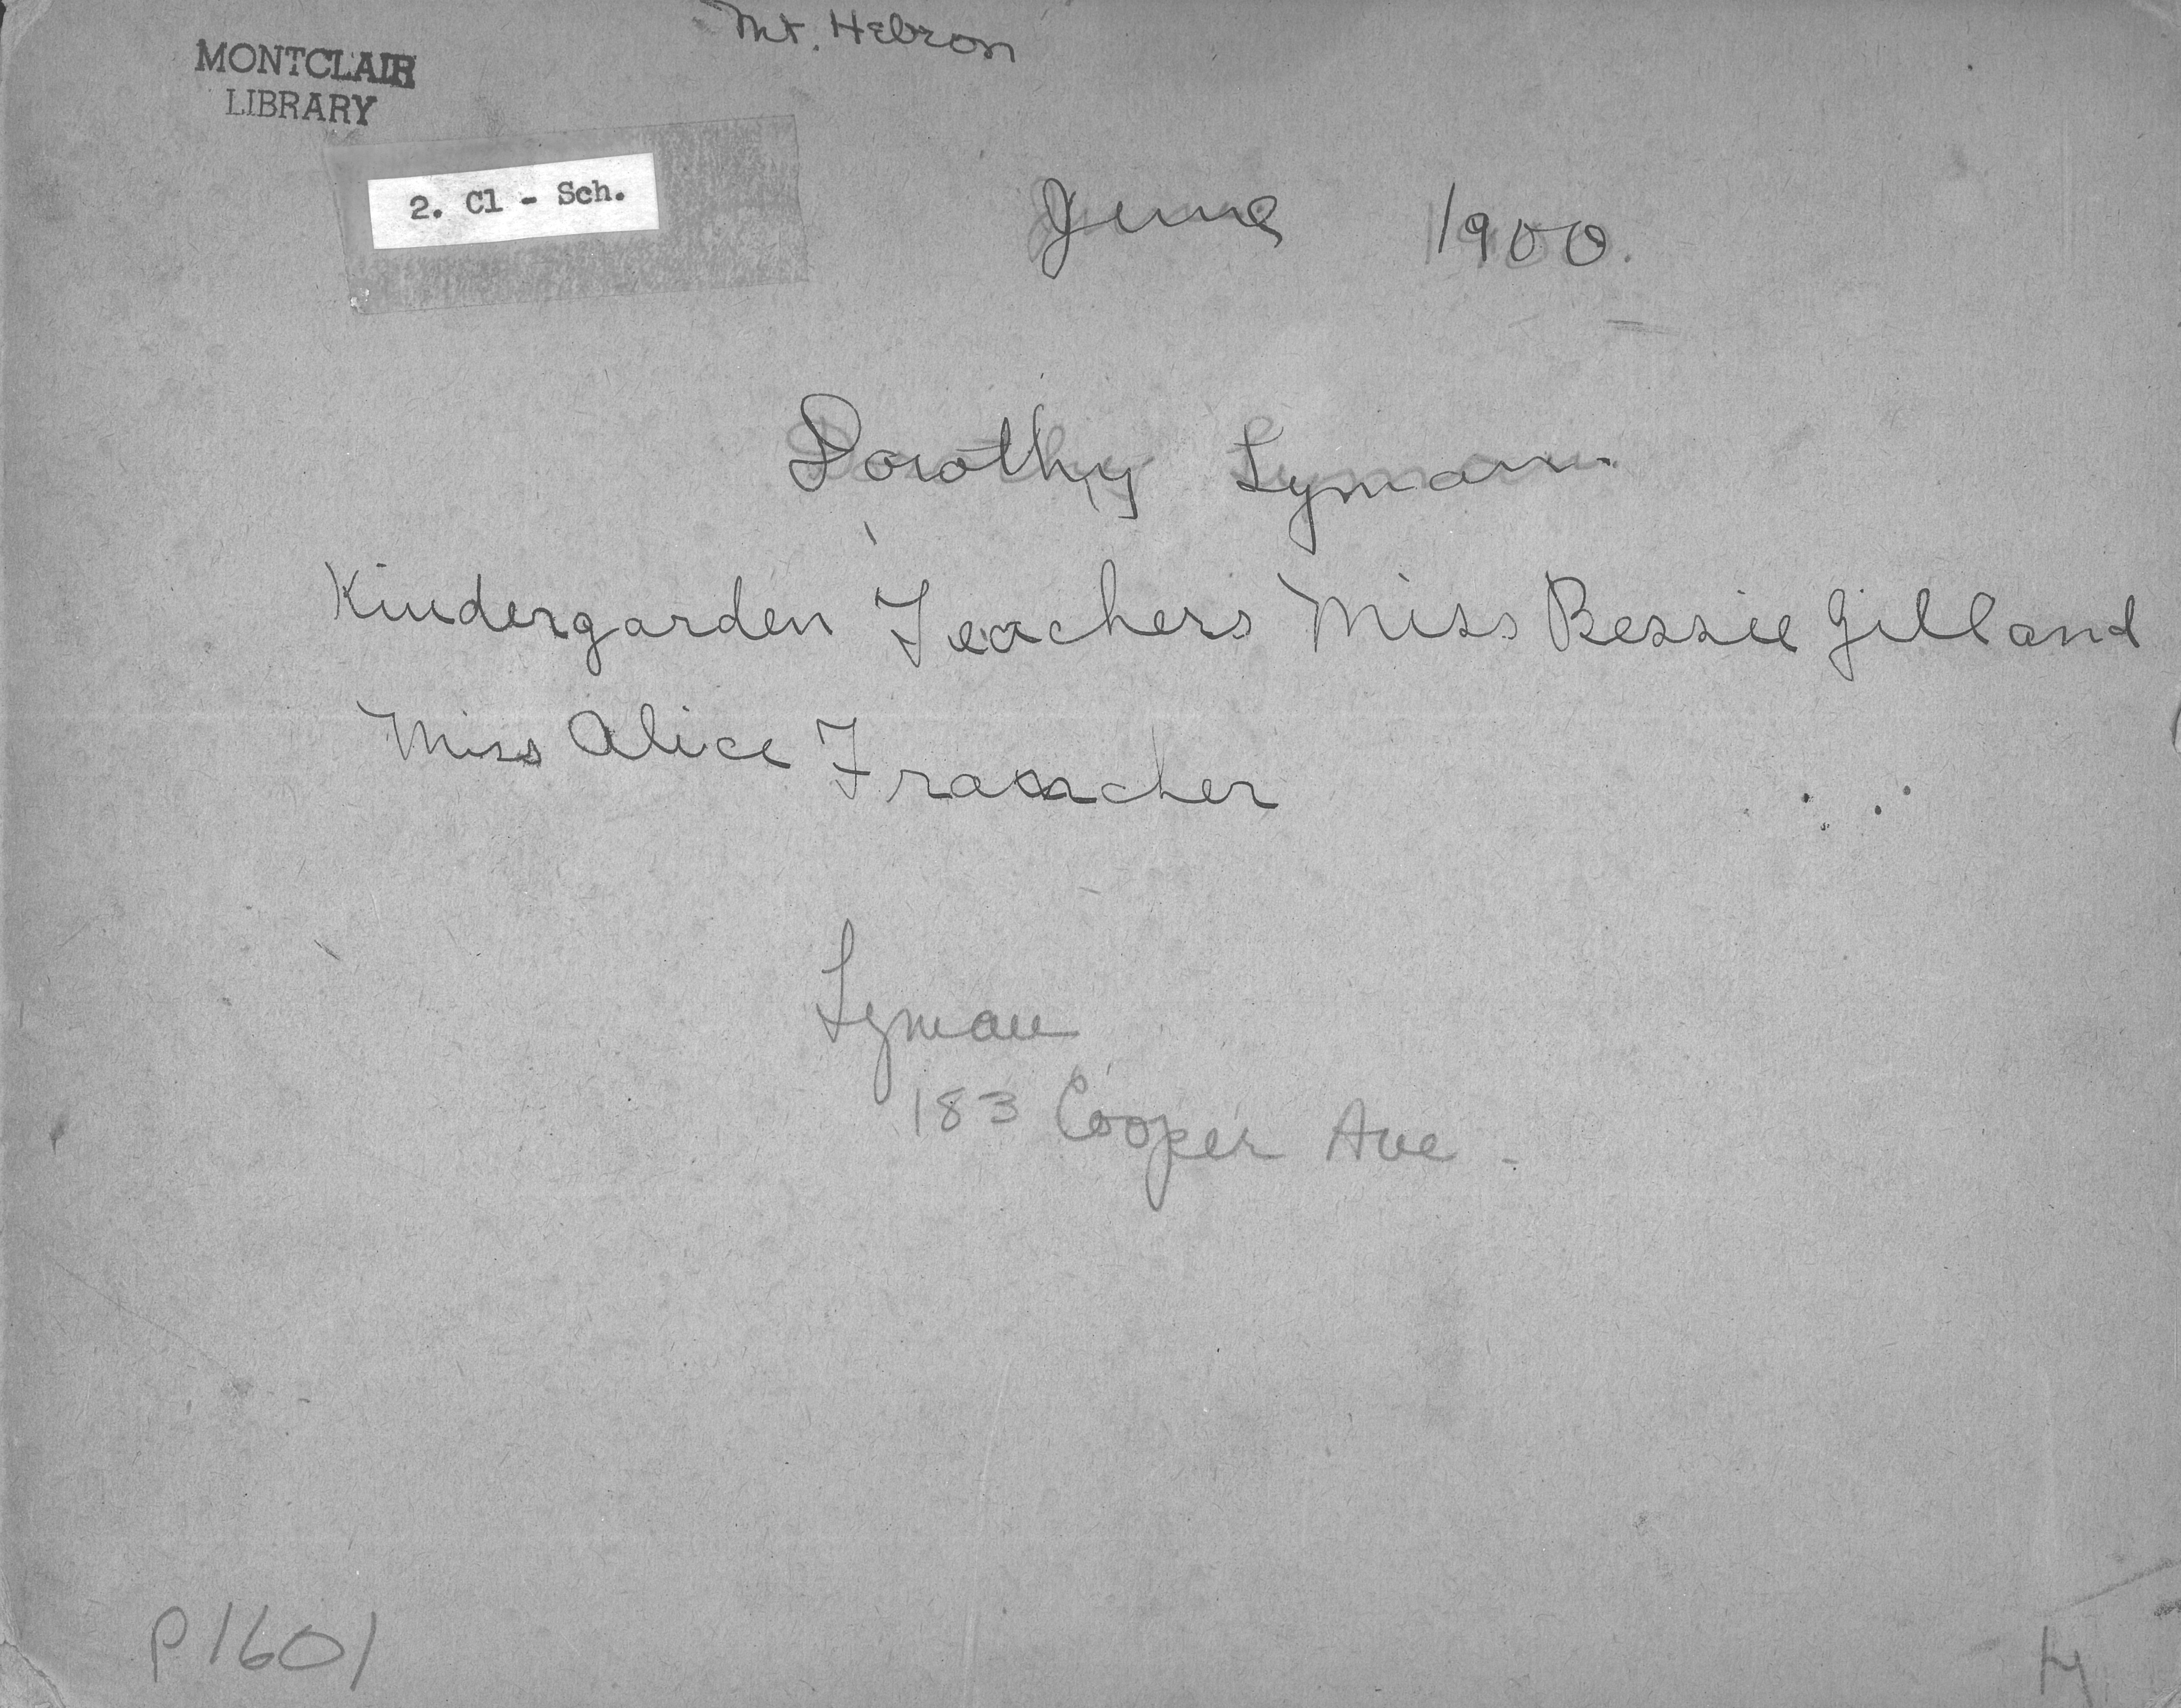 Mt. Hebron
MONTCLAIR
LIBRARY
2. Cl - Sch.
June 1900.
Dorothy Lyman.
Kindergarden Teachers Miss Bessie Gilland
Miss Alice Francher
Lyman
183 Cooper Ave -
P1601